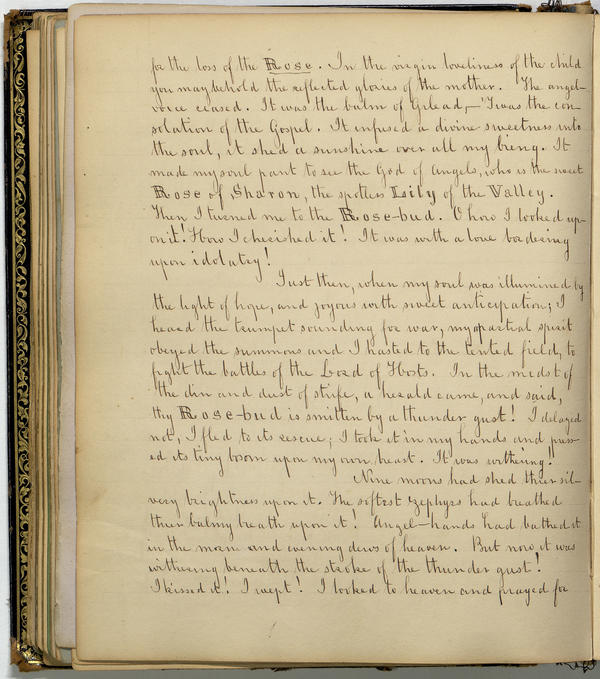 for the loss of the Rose. In the virgin loveliness of the child
you may behold the reflected glories of the mother. The angel-
voice ceased. It was the balm of Gilead,—'Twas the con-
solation of the Gospel. It infused a divine sweetness into
the soul, it shed a sunshine over all my being. It
made my soul pant to see the God of angels, who is the sweet
Rose of Sharon, the spotless Lily of the Valley.
Then I turned me to the Rose-bud. O how I looked up-
on it! How I cherished it! It was with a love bordering
upon idolatry!
Just then, when my soul was illumined by
the light of hope, and joyous with sweet anticipation; I
heard the trumpet sounding for war, my martial spirit
obeyed the summons and I hasted to the tented field, to
fight the battles of the Lord of Hosts. In the midst of
the din and dust of strife, a herald came, and said,
thy Rose-bud is smitten by a thunder gust! I delayed
not, I fled to its rescue; I took it in my hands and press-
ed its tiny bosom upon my own heart. It was withering!
Nine moons had shed thier sil-
very brightness upon it. The softest zephyrs had breathed
thier balmy breath upon it! Angel-hands had bathed it
in the morn and evening dews of heaven. But now it was
withering beneath the stroke of the thunder gust!
I kissed it! I wept! I looked to heaven and prayed for